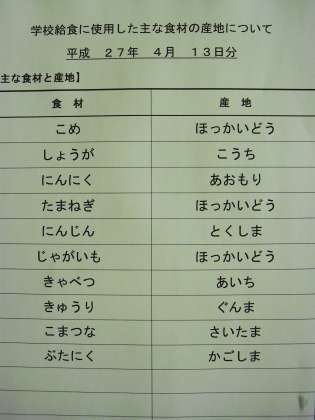 学校給食に使用した主な食材の産地について
平成　２７年　４月　１３日分
主な食材と産地】
食　材　産　地
こめ　ほっかいどう
しょうが　こうち
にんにく　あおもり
たまねぎ　ほっかいどう
にんじん　とくしま
じゃがいも　ほっかいどう
きゃべつ　あいち
きゅうり　ぐんま
こまつな　さいたま
ぶたにく　かごしま